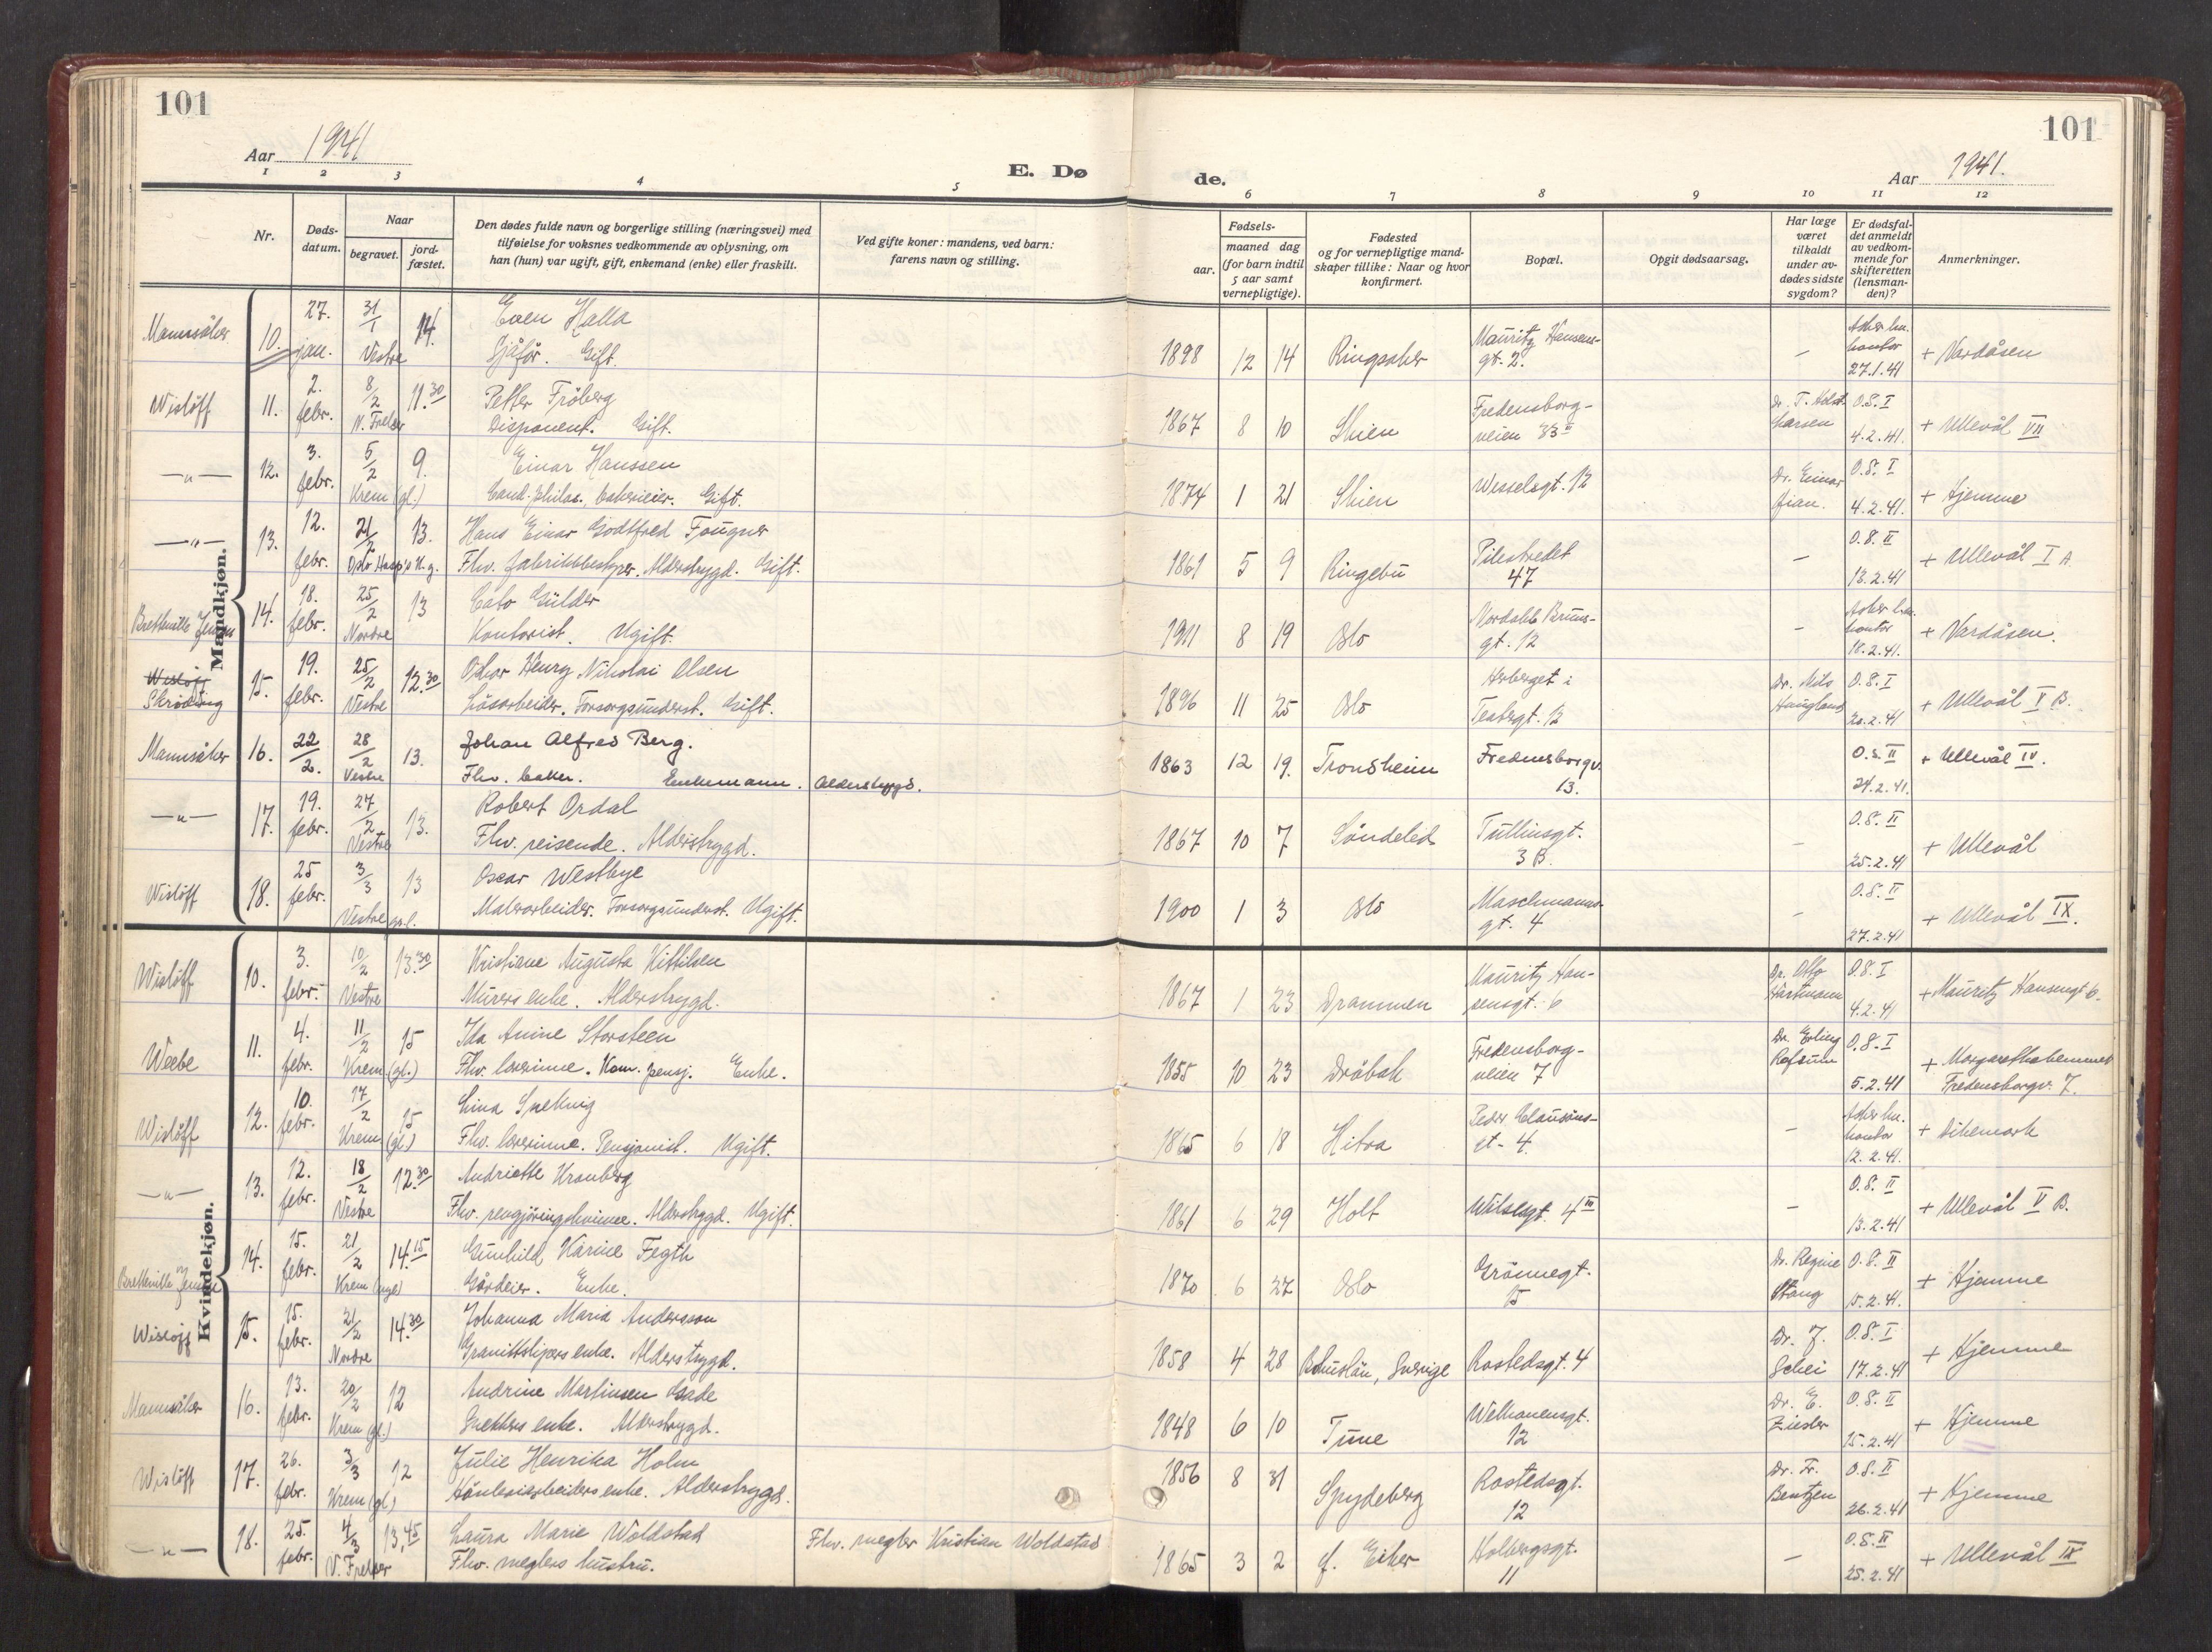 101
101
Aar 1941
Aar 1941.
E. Dø
de.
1 2 3 4 5 6 7 8 9 10 11 12
Nr.
Døds-
datum.
Naar
begravet.
jord-
fæstet.
Den dødes fulde navn og borgerlige stilling (næringsvei) med
tilføielse for voksnes vedkommende av oplysning, om
han (hun) var ugift, gift, enkemand (enke) eller fraskilt.
Ved gifte koner: mandens, ved barn:
farens navn og stilling.
Fødsels-
aar.
maaned dag
(for barn indtil
5 aar samt
vernepligtige).
Fødested
og for vernepligtige mand-
skaper tillike: Naar og hvor
konfirmert.
Bopæl.
Opgit dødsaarsag.
Har læge
været
tilkaldt
under av-
dødes sidste
sygdom?
Er dødsfal-
det anmeldt
av vedkom-
mende for
skifteretten
(lensman-
den)?
Anmerkninger.
Mandkjøn.
Mannsåker 10. 27. jan. 31/1 Vestre 14. Even Halla
Sjåfør. Gift.
1898 12 14 Ringsaker Mauritz Hansens-
gt. 2. — Asker lm.
kontor
27.1.41 + Vardåsen
Wisløff 11. 2. febr. 8/2 V. Frelser 11.30 Petter Frøberg
Disponent. Gift.
1867 8 10 Skien Fredensborg-
veien 33 II Dr. T. Holst
Larsen O.S. I
4.2.41. + Ullevål VII
—"— 12. 3. febr. 5/2 Krem (gl.) 9. Einar Hanssen
Cand. philos. Gift.
1874 1 21 Skien Wesselsgt. 12 Dr. Einar
O.S. I
4.2.41. + Hjemme
—"— 13. 12. febr. 21/2 13. Hans Einar Godtfred Fougner
Fhv. fabrikkbestyrer. Alderstrygd. Gift.
1861 5 9 Ringebu Pilestredet
47 — O.S. II
13.2.41 + Ullevål I A.
Brettville Jensen 14. 18. febr. 25/2 Nordre 13 Cato Gülder
Kontorist. Ugift.
1911 8 19 Oslo Nordahl Bruns-
gt. 12 — Asker lm.
kontor
18.2.41. + Vardåsen.
Wisløff
Skrøding 15. 19. febr. 25/2 Vestre 12.30 Oskar Henry Nikolai Olsen
Løsarbeider. Forsorgsunderst. Gift.
1896 11 25 Oslo Herberget i
Teatergt. 12 Dr. Nils
Haugland O.S. I
20.2.41 + Ullevål V B.
Mannsåker 16. 22/2. 28/2 Vestre 13. Johan Alfred Berg.
Fhv. baker. Enkemann. Alderstrygd.
1863 12 19. Trondheim Fredensborgv.
13. O.S. II
24.2.41. + Ullevål IV.
—"— 17. 19. febr. 27/2 Vestre 13. Robert Ordal
Fhv. reisende. Alderstrygd.
1867 10 7 Søndeled Tullinsgt.
3 B. — O.S. II
25.2.41 + Ullevål
Wisløff 18. 25 febr. 3/3 Vestre gr.l. 13 Oscar Westbye
Malerarbeider. Forsorgsunderst. Ugift.
1900 1 3 Oslo Maschmanns-
gt. 4 — O.S. II
27.2.41 + Ullevål IX.
Kvindekjøn.
Wisløff 10. 3. febr. 10/2 Vestre 13.30 Kristiane Augusta Kittilsen
Murers enke. Alderstrygd.
1867 1 23 Drammen Mauritz Han-
sensgt. 6 Dr. Otto
Hartmann O.S. I
4.2.41 + Mauritz Hansensgt 6.
Weebe 11. 4. febr. 11/2 Krem (gl.) 15 Ida Anine Storsteen
Fhv. lærerinne. Kom. pensj. Enke.
1855 10 23 Drøbak Fredensborg-
veien 7 Dr. Erling
Refsum O.S. I
5.2.41 + Margarethahemmet
Fredensborgv. 7.
Wisløff 12. 10. febr. 17/2 Krem (gl.) 15 Lina Snekvig
Fhv. lærerinne. Pensjonist. Ugift.
1865 6 18 Hitra Peder Claussøns-
gt. 4. — Asker lm.
kontor
12.2.41. + Dikemark
—"— 13. 12. febr. 18/2 Vestre 12.30 Andriette Kronberg
Fhv. rengjøringskvinne. Alderstrygd. Ugift.
1861 6 29 Holt Wilsesgt. 4 III — O.S. II
13.2.41 + Ullevål V B.
Brettville Jensen 14. 15. febr. 21/2 Krem (nye) 14.15 Gunhild Karine Fegth
Gårdeier. Enke.
1870 6 27 Oslo Grønnegt.
15 Dr. Regine
Stang O.S. II
15.2.41. + Hjemme
Wisløff 15. 15. febr. 21/2 Nordre 14.30 Johanna Maria Andersson
Granittslipers enke. Alderstrygd.
1858 4 28 Bohuslän, Sverige Rostedsgt. 4 Dr. J.
Schei O.S. I
17.2.41 + Hjemme
Mannsåker 16. 13. febr. 20/2 Krem (gl.) 12 Andrine Martinsen Gade
Snekkers enke. Alderstrygd.
1848 6 10 Tune Welhavensgt.
12 Dr. E.
Ziesler O.S. II
15.2.41 + Hjemme
Wisløff 17. 26. febr. 3/3 Krem (gl.) 12 Julie Henrika Holm
Alderstrygd.
1856 8 31 Spydeberg Rostedsgt.
12 Dr. Fr.
Bentzen O.S. II
26.2.41 + Hjemme
—"— 18. 25. febr. 4/3 V. Frelser 13,45 Laura Marie Woldstad
Fhv. meglers hustru. Fhv. megler Kristian Woldstad
1865 3 2 f. Eiker Holbergsgt.
11 — O.S. II
25.2.41 + Ullevål IX